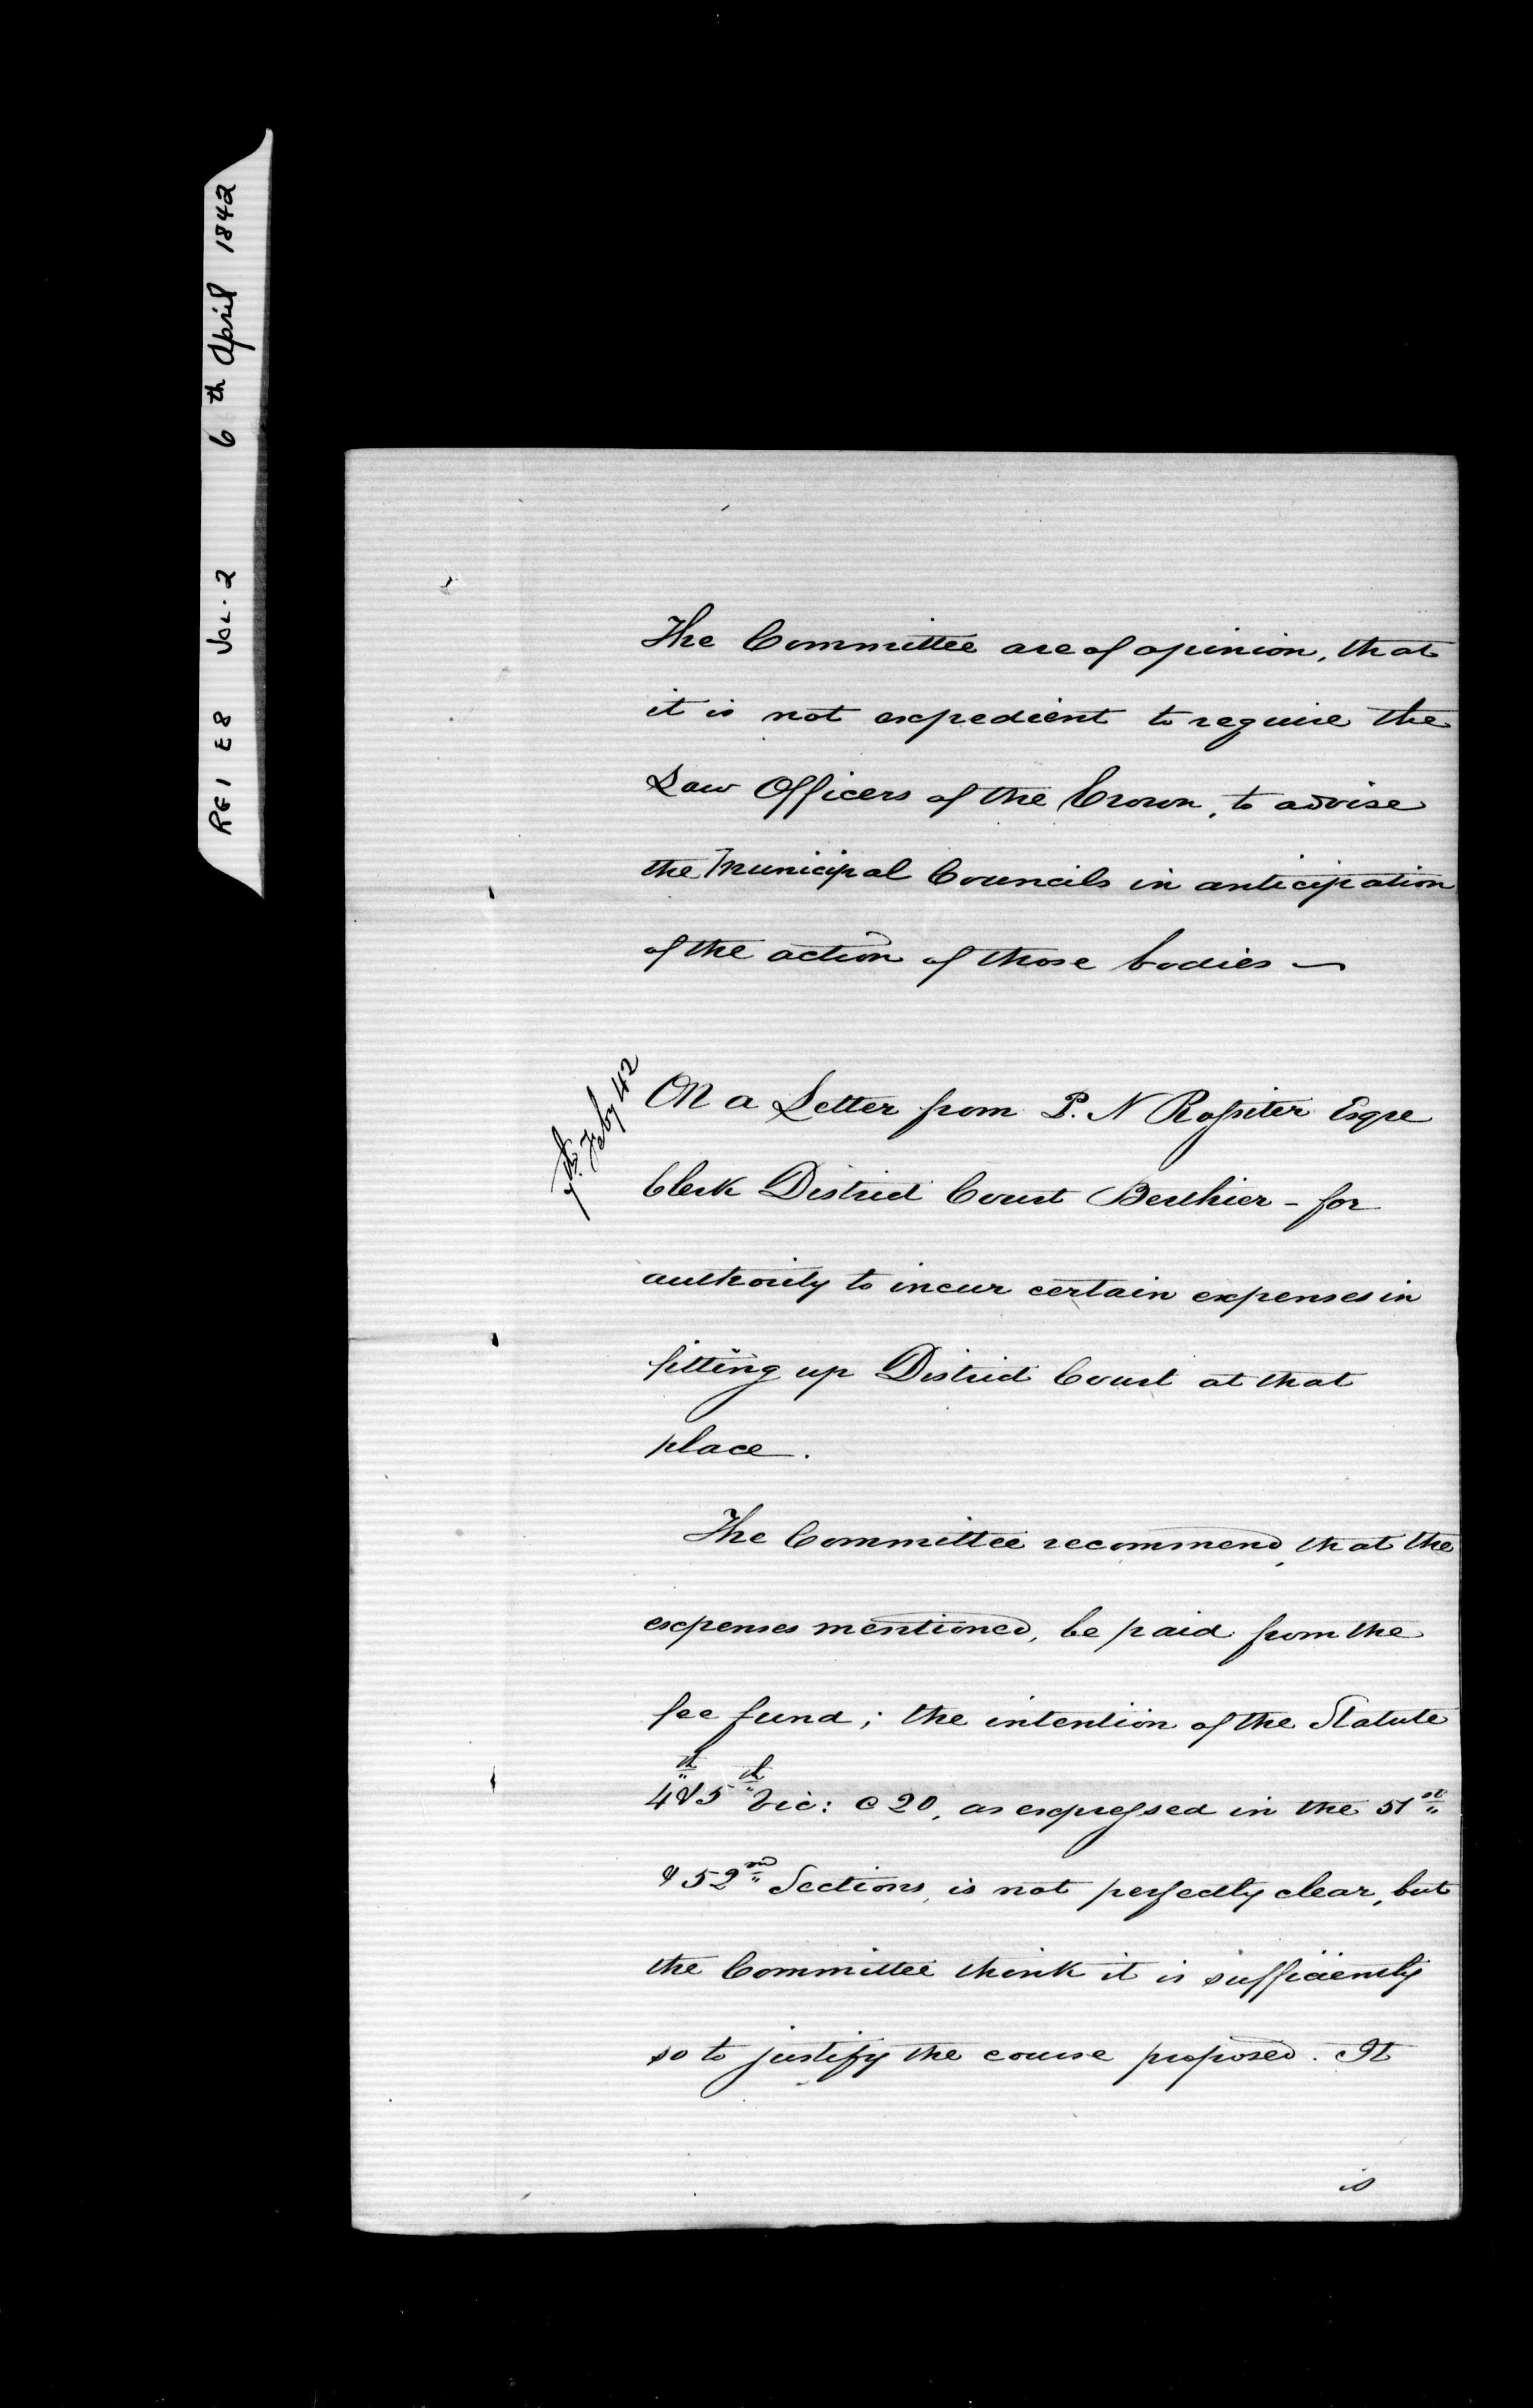 RG1 E8 VOL. 2 6th April 1842
The Committee are of opinion, that
it is not expedient to require the
Law Officers of the Crown, to advise
the Municipal Councils in anticipation
of the action of those bodies —
7th Feby 42
On a Letter from P. N Rossiter Esqre
Clerk District Court Berthier - for
authority to incur certain expenses in
fitting up District Court at that
place.
The Committee recommend, that the
expenses mentioned, be paid from the
fee fund; the intention of the Statute
4th & 5th Vic: C 20, as expressed in the 51st
& 52nd Sections, is not perfectly clear, but
the Committee think it is sufficiently
so to justify the course proposed. It
is